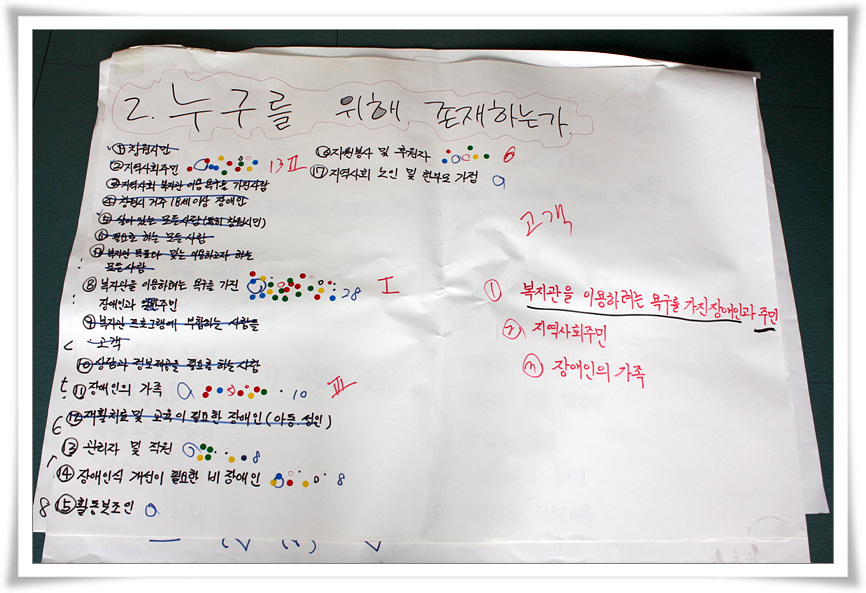 2. 누구를 위해 존재하는가.
① 창원시민
② 지역사회주민 13 II
③ 지역사회 복지관 이용 욕구를 가진사람
④ 창원시 거주 18세이상 장애인
⑤ 살아있는 모든사람(특히 창원시민)
⑥ 필요로 하는 모든 사람
⑦ 복지관 목표에 맞는 이용하고자 하는
모든사람
⑧ 복지관을 이용하려는 욕구를 가진
장애인과 주민 28 I
⑨ 복지관 프로그램에 부합하는 사람들
고객
⑩ 상담과 정보제공을 필요로 하는 사람
⑪ 장애인의 가족 10 III
⑫ 재활치료 및 교육이 필요한 장애인(아동.성인)
⑬ 관리자 및 직원 8
⑭ 장애인식 개선이 필요한 비장애인 8
⑮ 활동보조인 0
⑯ 자원봉사 및 후원자 6
⑰ 지역사회 노인 및 한부모 가정 0
고객
① 복지관을 이용하려는 욕구를 가진장애인과 주민
② 지역사회주민
③ 장애인의 가족